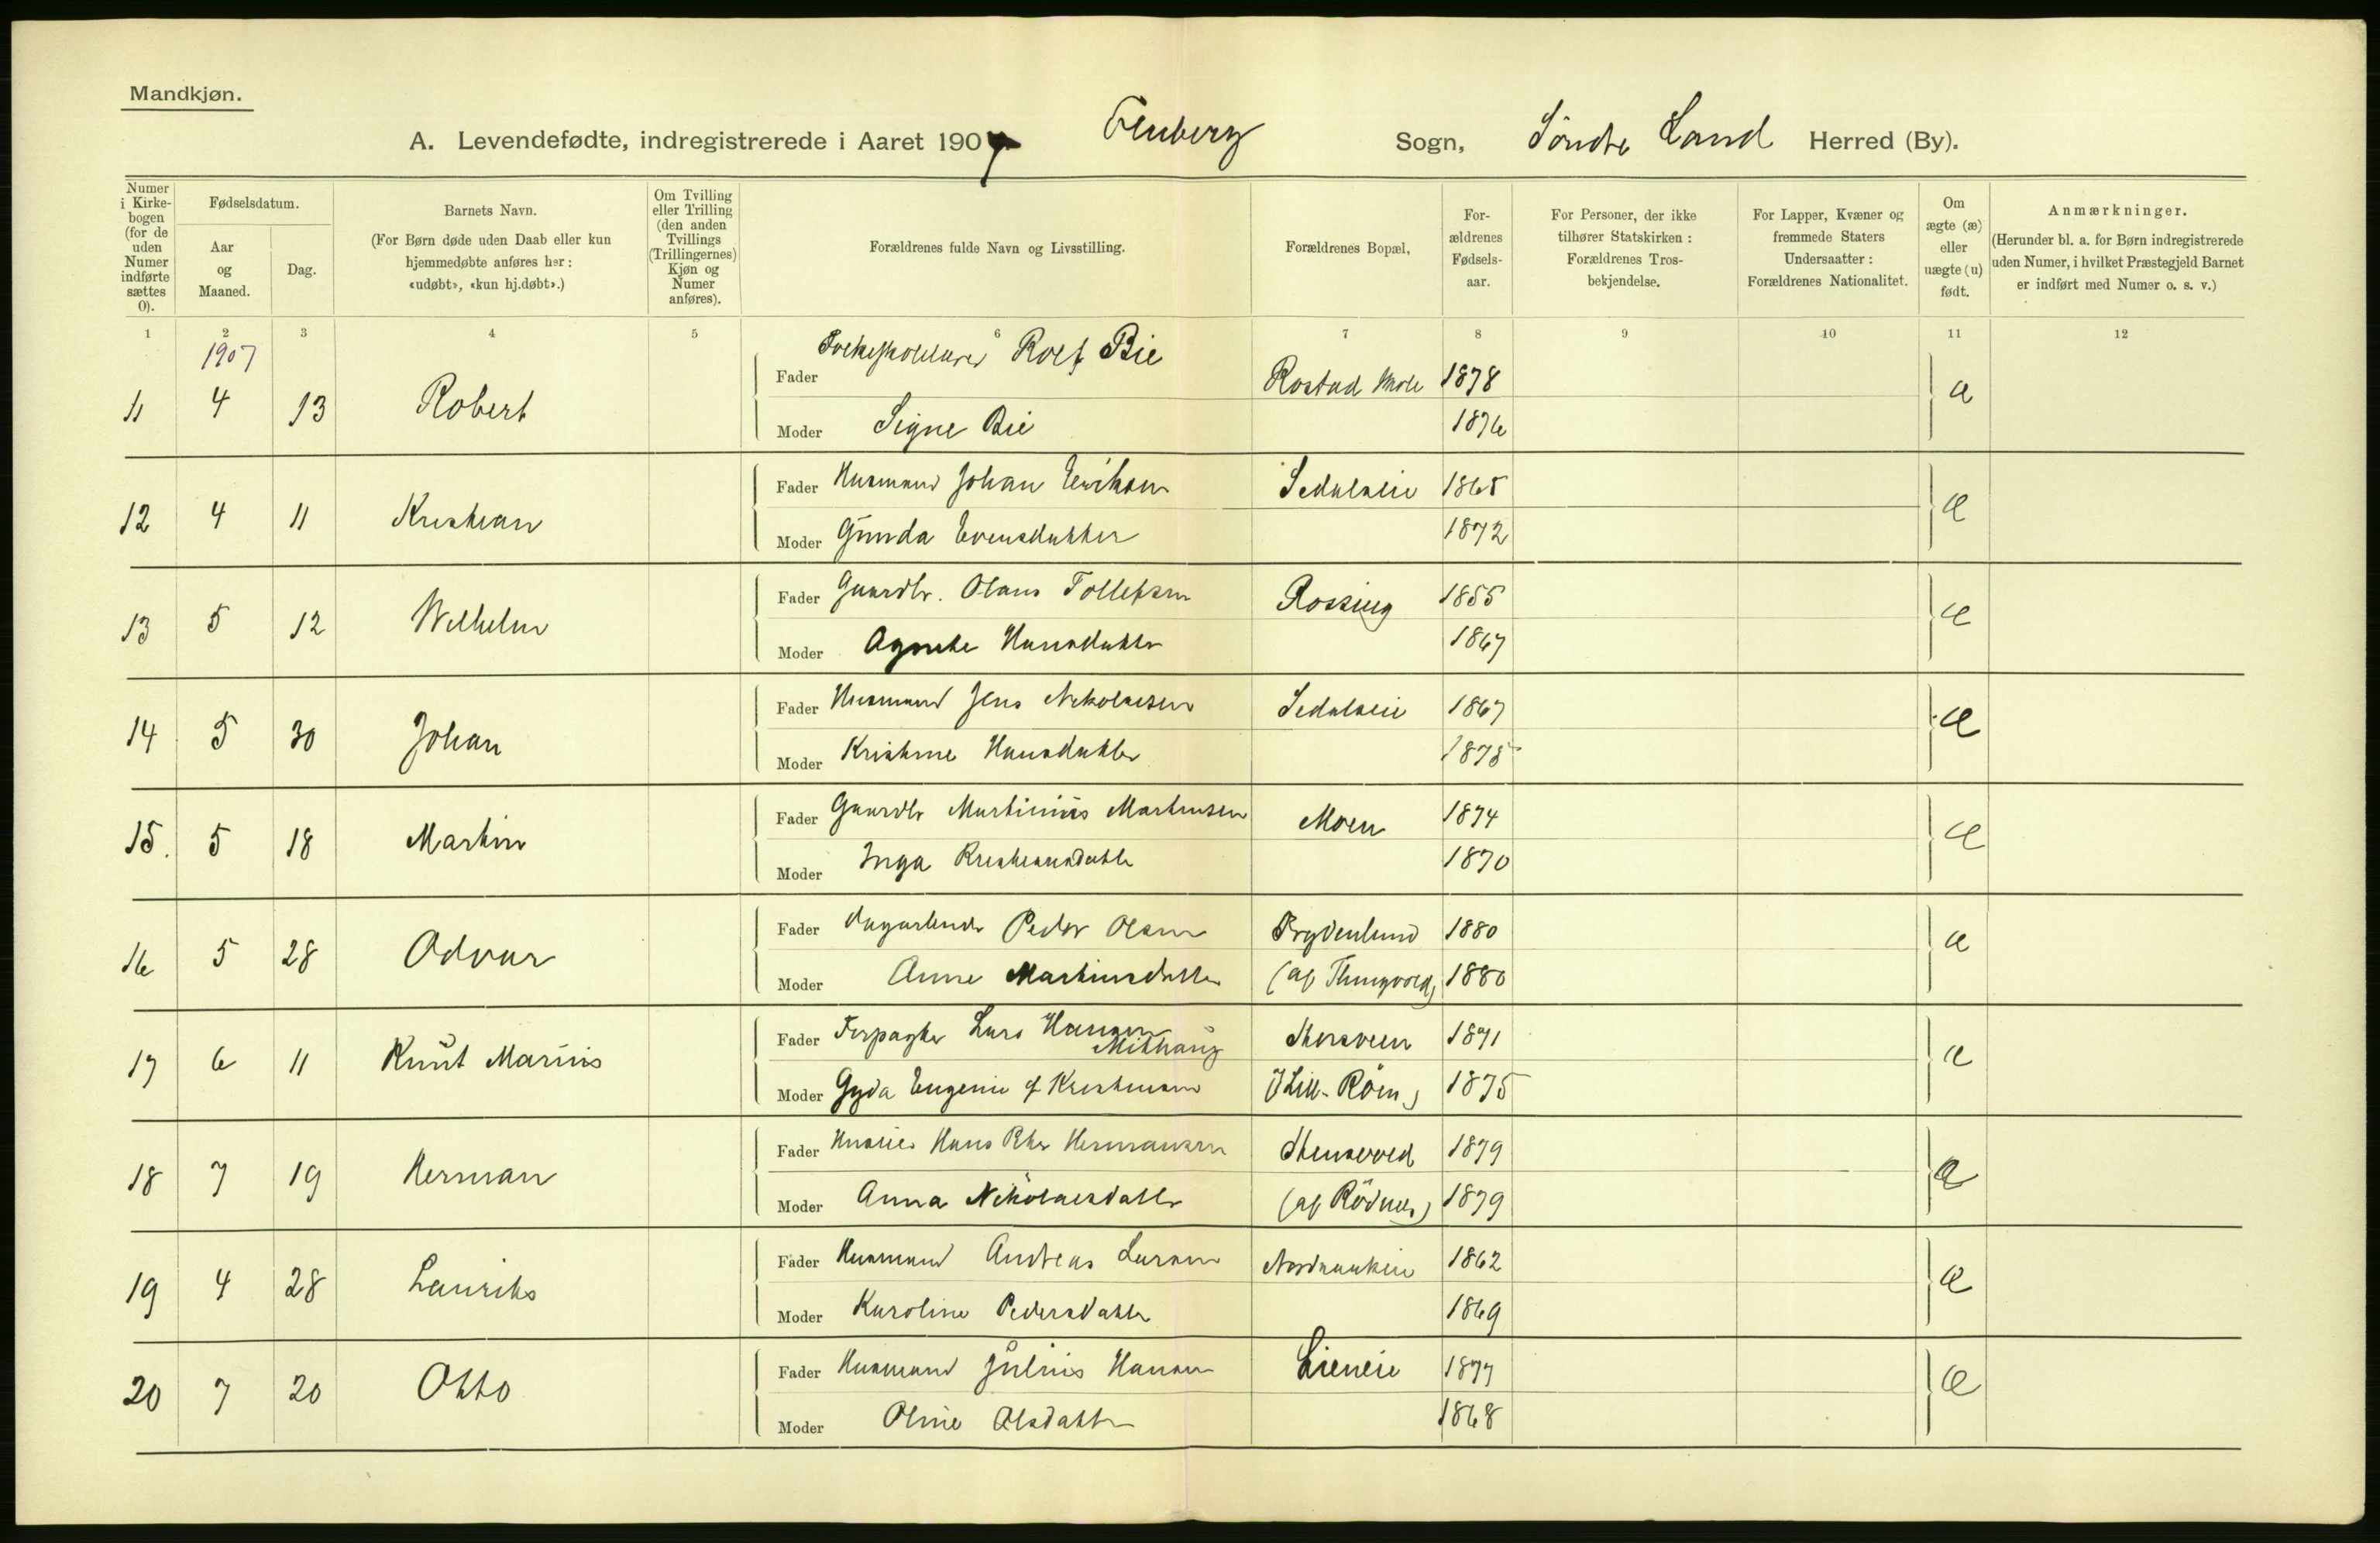 Mandkjøn.
A. Levendefødte, indregistrerede i Aaret 1907 Fluberg Sogn, Søndre Land Herred (By).
Numer i Kirkebogen (for de uden Numer indførte sættes 0).
Fødselsdatum.
Aar og Maaned.
Dag.
Barnets Navn.
(For Børn døde uden Daab eller kun hjemmedøbte anføres her: «udøbt», «kun hj.døbt».)
Om Tvilling eller Trilling (den anden Tvillings (Trillingernes) Kjøn og Numer anføres).
Forældrenes fulde Navn og Livsstilling.
Forældrenes Bopæl,
Forældrenes Fødselsaar.
For Personer, der ikke tilhører Statskirken: Forældrenes Trosbekjendelse.
For Lapper, Kvæner og fremmede Staters Undersaatter: Forældrenes Nationalitet.
Om ægte (æ) eller uægte (u) født.
Anmærkninger.
(Herunder bl. a. for Børn indregistrerede uden Numer, i hvilket Præstegjeld Barnet er indført med Numer o. s. v.)
1 2 3 4 5 6 7 8 9 10 11 12
1907
11 4 13 Robert Fader Folkeskolelærer Rolf Bie Rostad skole 1878 æ
Moder Signe Bie 1876
12 4 11 Kristian Fader Husmand Johan Eriksen Sedalseie 1865 æ
Moder Gunda Evensdatter 1872
13 5 12 Wilhelm Fader Gaardbr. Olaus Tollefsen Rossing 1855 æ
Moder Agnethe Hansdatter 1867
14 5 30 Johan Fader Husmand Jens Nikolaisen Sedalseie 1867 æ
Moder Kristine Hansdatter 1875
15. 5 18 Martin Fader Gaardbr Martinius Martinsen Moen 1874 æ
Moder Inga Kristiansdatter 1870
16 5 28 Odvar Fader Dagarbeider Peder Olsen Frydenlund 1880 æ
Moder Anne Martinsdatter (af Thingvold) 1880
17 6 11 Knut Marius Fader Forpagter Lars Hansen Mikhaug 1871 æ
Moder Gyda Eugenie f Kristiansen 1875
18 7 19 Herman Fader Hans Ptr Hermansen Stensved 1879 æ
Moder Anna Nikolaisdatter (af Rødnes) 1879
19 4 28 Laurits Fader Husmand Andreas Larsen 1862 æ
Moder Karoline Pedersdatter 1869
20 7 20 Otto Fader Husmand Julius Hansen Lieneie 1877 æ
Moder Oline Olsdatter 1868